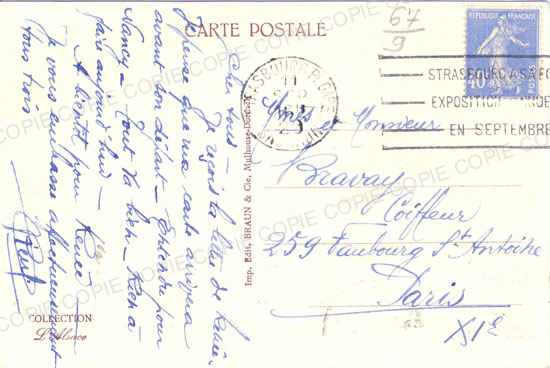 CARTE POSTALE
67
9
REPUBLIQUE FRANÇAISE
40
STRASBOURG
STRASBOURG A SA FO
EXPOSITION
EN SEPTEMBRE
Cher tous —
Je reçois la lettre de Renée
Je pense que ma carte arrivera
avant son départ — Entendu pour
Nancy — tout va bien — Rien à
faire aujourd'hui —
A bientôt pour Renée
Je vous embrasse affectueusement
tous trois
et Monsieur
Bravay
Coiffeur
259 Faubourg St Antoine
Paris
XIE
Imp. Edit. BRAUN & Cie, Mulhouse-Dornach
COLLECTION
L'Alsace
COPIE COPIE COPIE COPIE